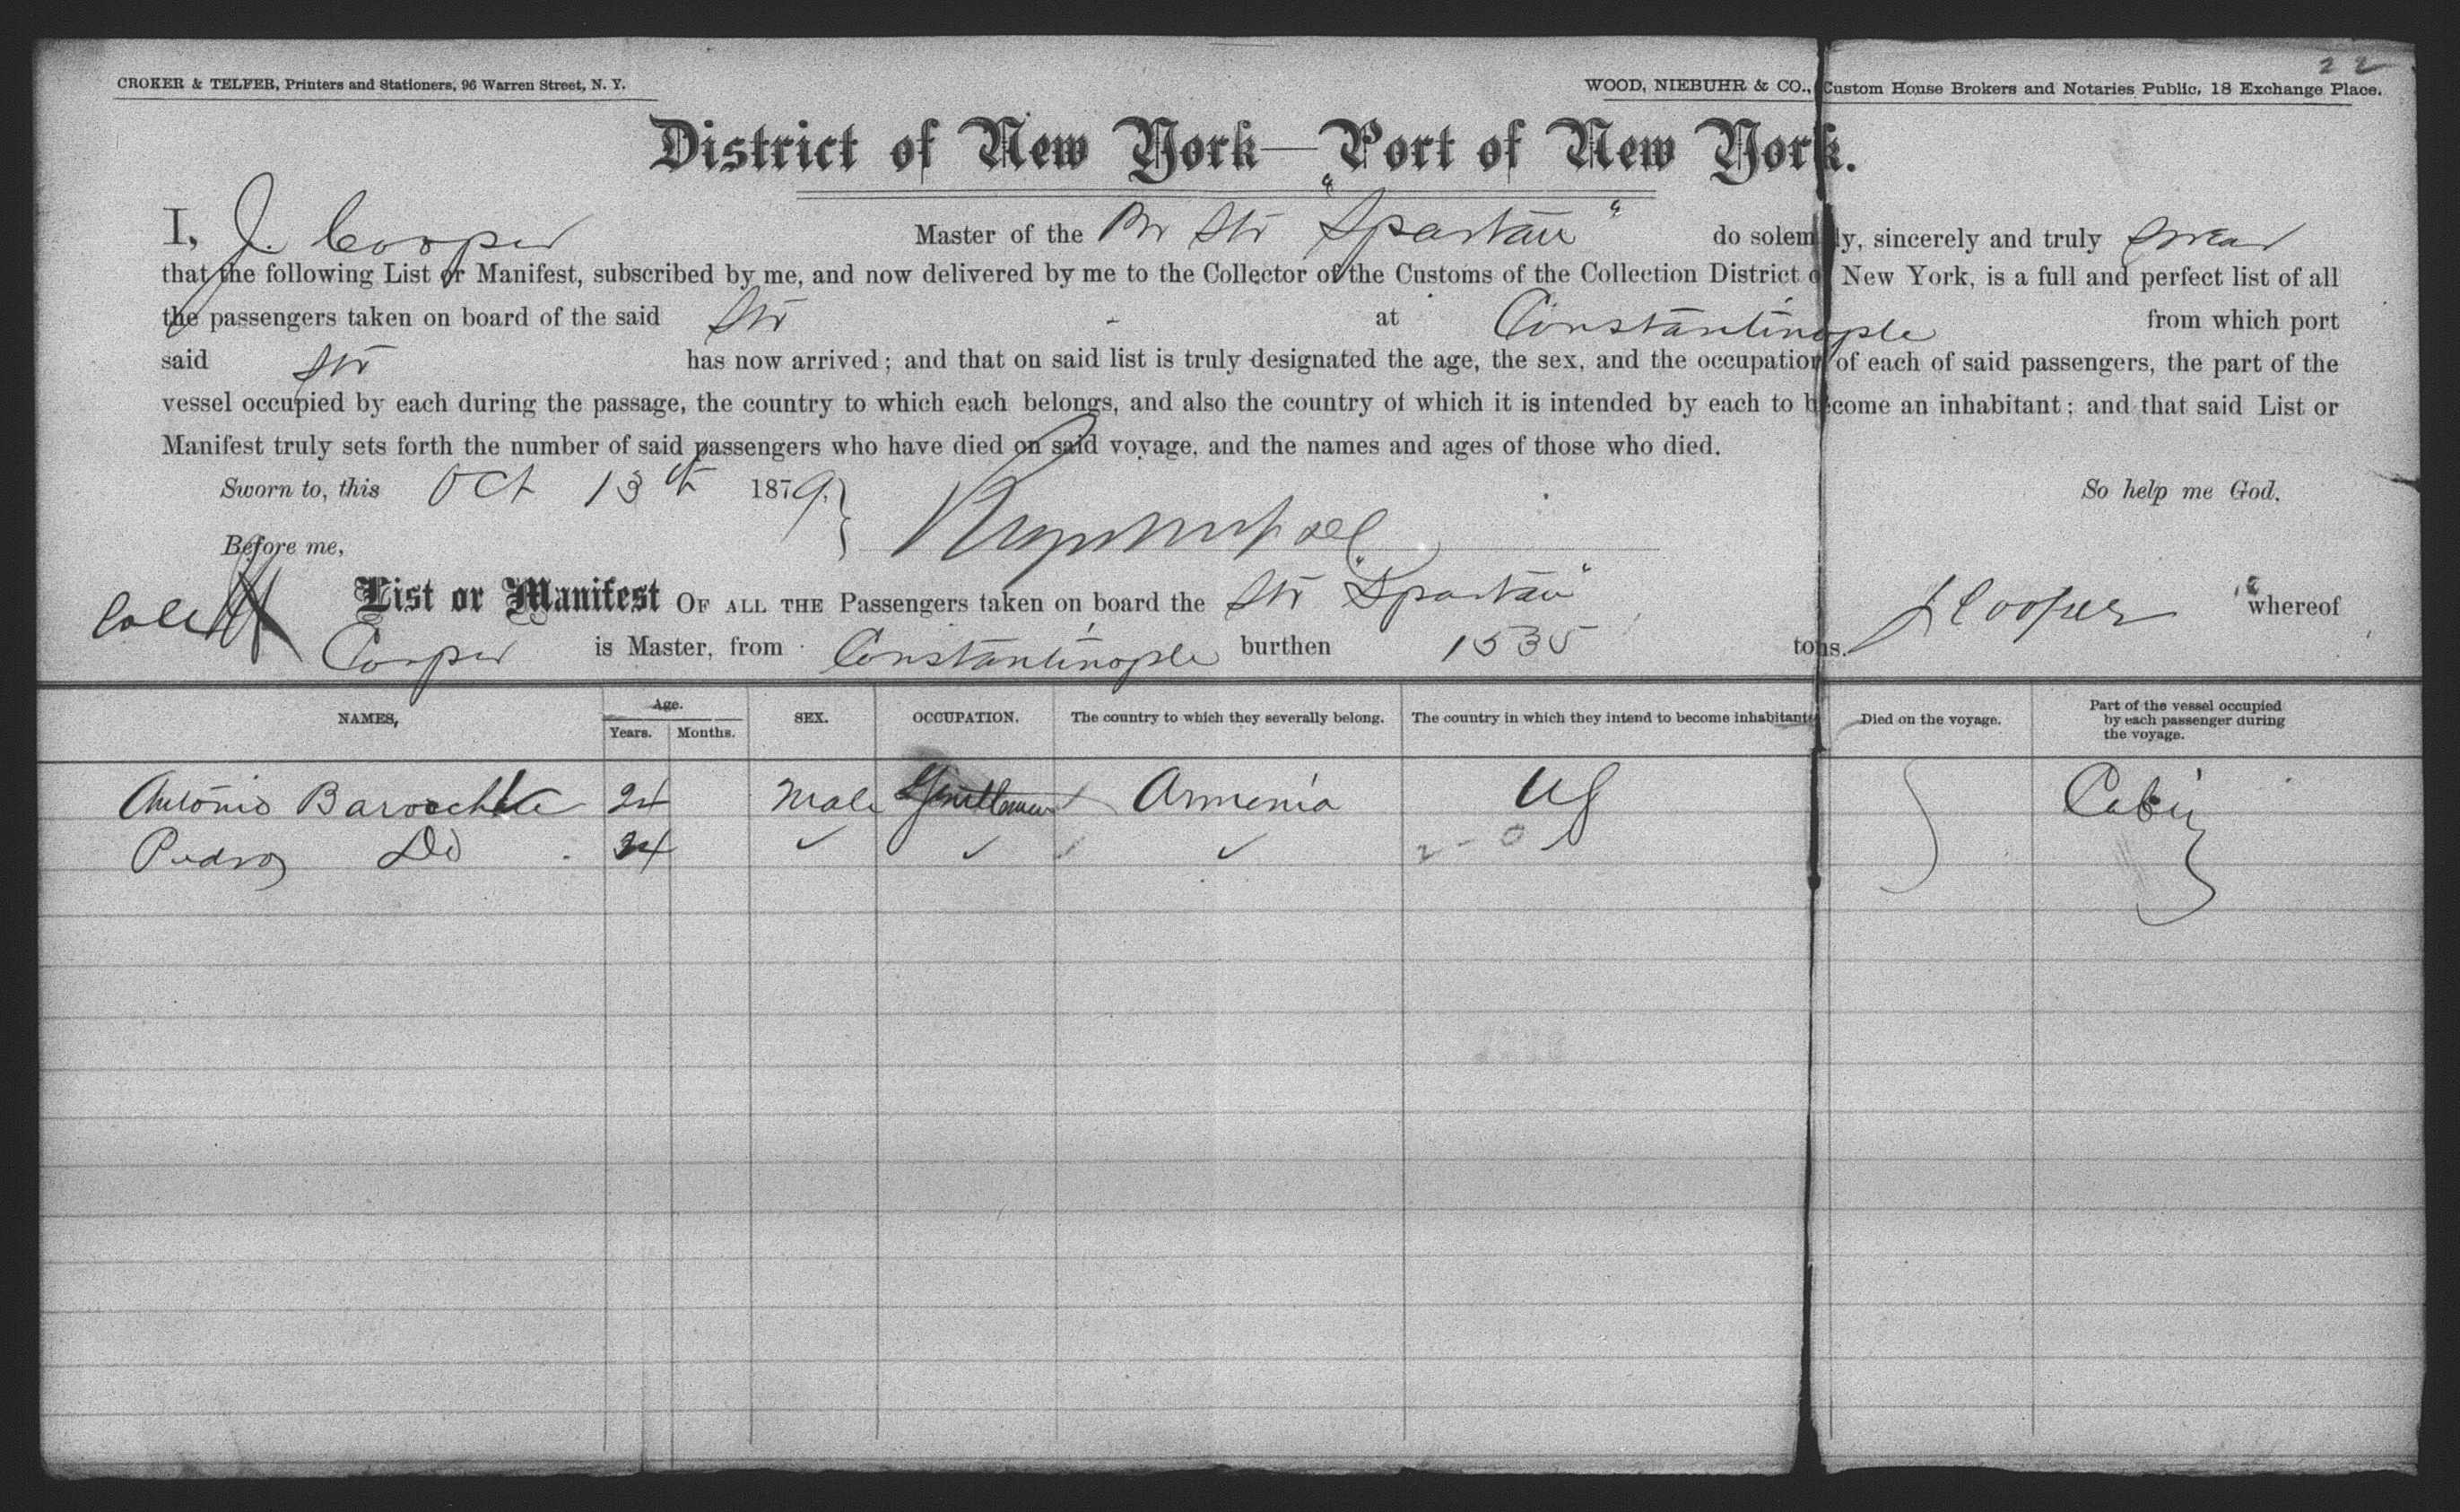 22
CROKER & TELFER, Printers and Stationers, 96 Warren Street, N. Y. WOOD, NIEBUHR & CO., Custom House Brokers and Notaries Public, 18 Exchange Place.
District of New York—Port of New York.
I, J. Cooper Master of the Br Str "Spartan" do solemnly, sincerely and truly swear
that the following List or Manifest, subscribed by me, and now delivered by me to the Collector of the Customs of the Collection District of New York, is a full and perfect list of all
the passengers taken on board of the said Str - at Constantinople from which port
said Str has now arrived; and that on said list is truly designated the age, the sex, and the occupation of each of said passengers, the part of the
vessel occupied by each during the passage, the country to which each belongs, and also the country of which it is intended by each to become an inhabitant; and that said List or
Manifest truly sets forth the number of said passengers who have died on said voyage, and the names and ages of those who died.
Sworn to, this Oct 13th 1879. So help me God.
Before me,
List or Manifest OF ALL THE Passengers taken on board the Str "Spartan" J Cooper whereof
Cooper is Master, from Constantinople burthen 1535 tons.
NAMES, Age. Years. Months. SEX. OCCUPATION. The country to which they severally belong. The country in which they intend to become inhabitants Died on the voyage. Part of the vessel occupied by each passenger during the voyage.
Antonio 24 Male Gentleman Armenia US Cabin
Pedro Do 24 ✓ ✓ ✓ 2-0